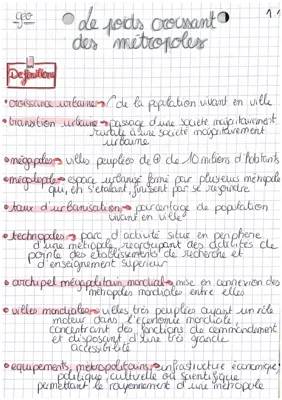 géo
1
Le poids croissant
des métropoles
Définitions
• croissance urbaine → ↗ de la population vivant en ville
• transition urbaine → passage d'une société majoritairement
rurale à une société majoritairement
urbaine
• mégapoles → villes peuplées de ⊕ de 10 millions d'habitants
• mégalopole → espace urbanisé formé par plusieurs métropoles
qui, en s'étalant, finissent par se rejoindre
• taux d'urbanisation → pourcentage de population
vivant en ville
• technopoles → parc d'activité situé en périphérie
d'une métropole, regroupant des activités de
pointe des établissements de recherche et
d'enseignement supérieur
• archipel mégapolitain mondial → mise en connexion des
métropoles mondiales entre elles
• villes mondiales → villes très peuplées ayant un rôle
moteur dans l'économie mondiale,
concentrant des fonctions de commandement
et disposant d'une très grande
accessibilité
• équipements métropolitains → infrastructure économique,
politique, culturelle ou scientifique
permettant le rayonnement d'une métropole